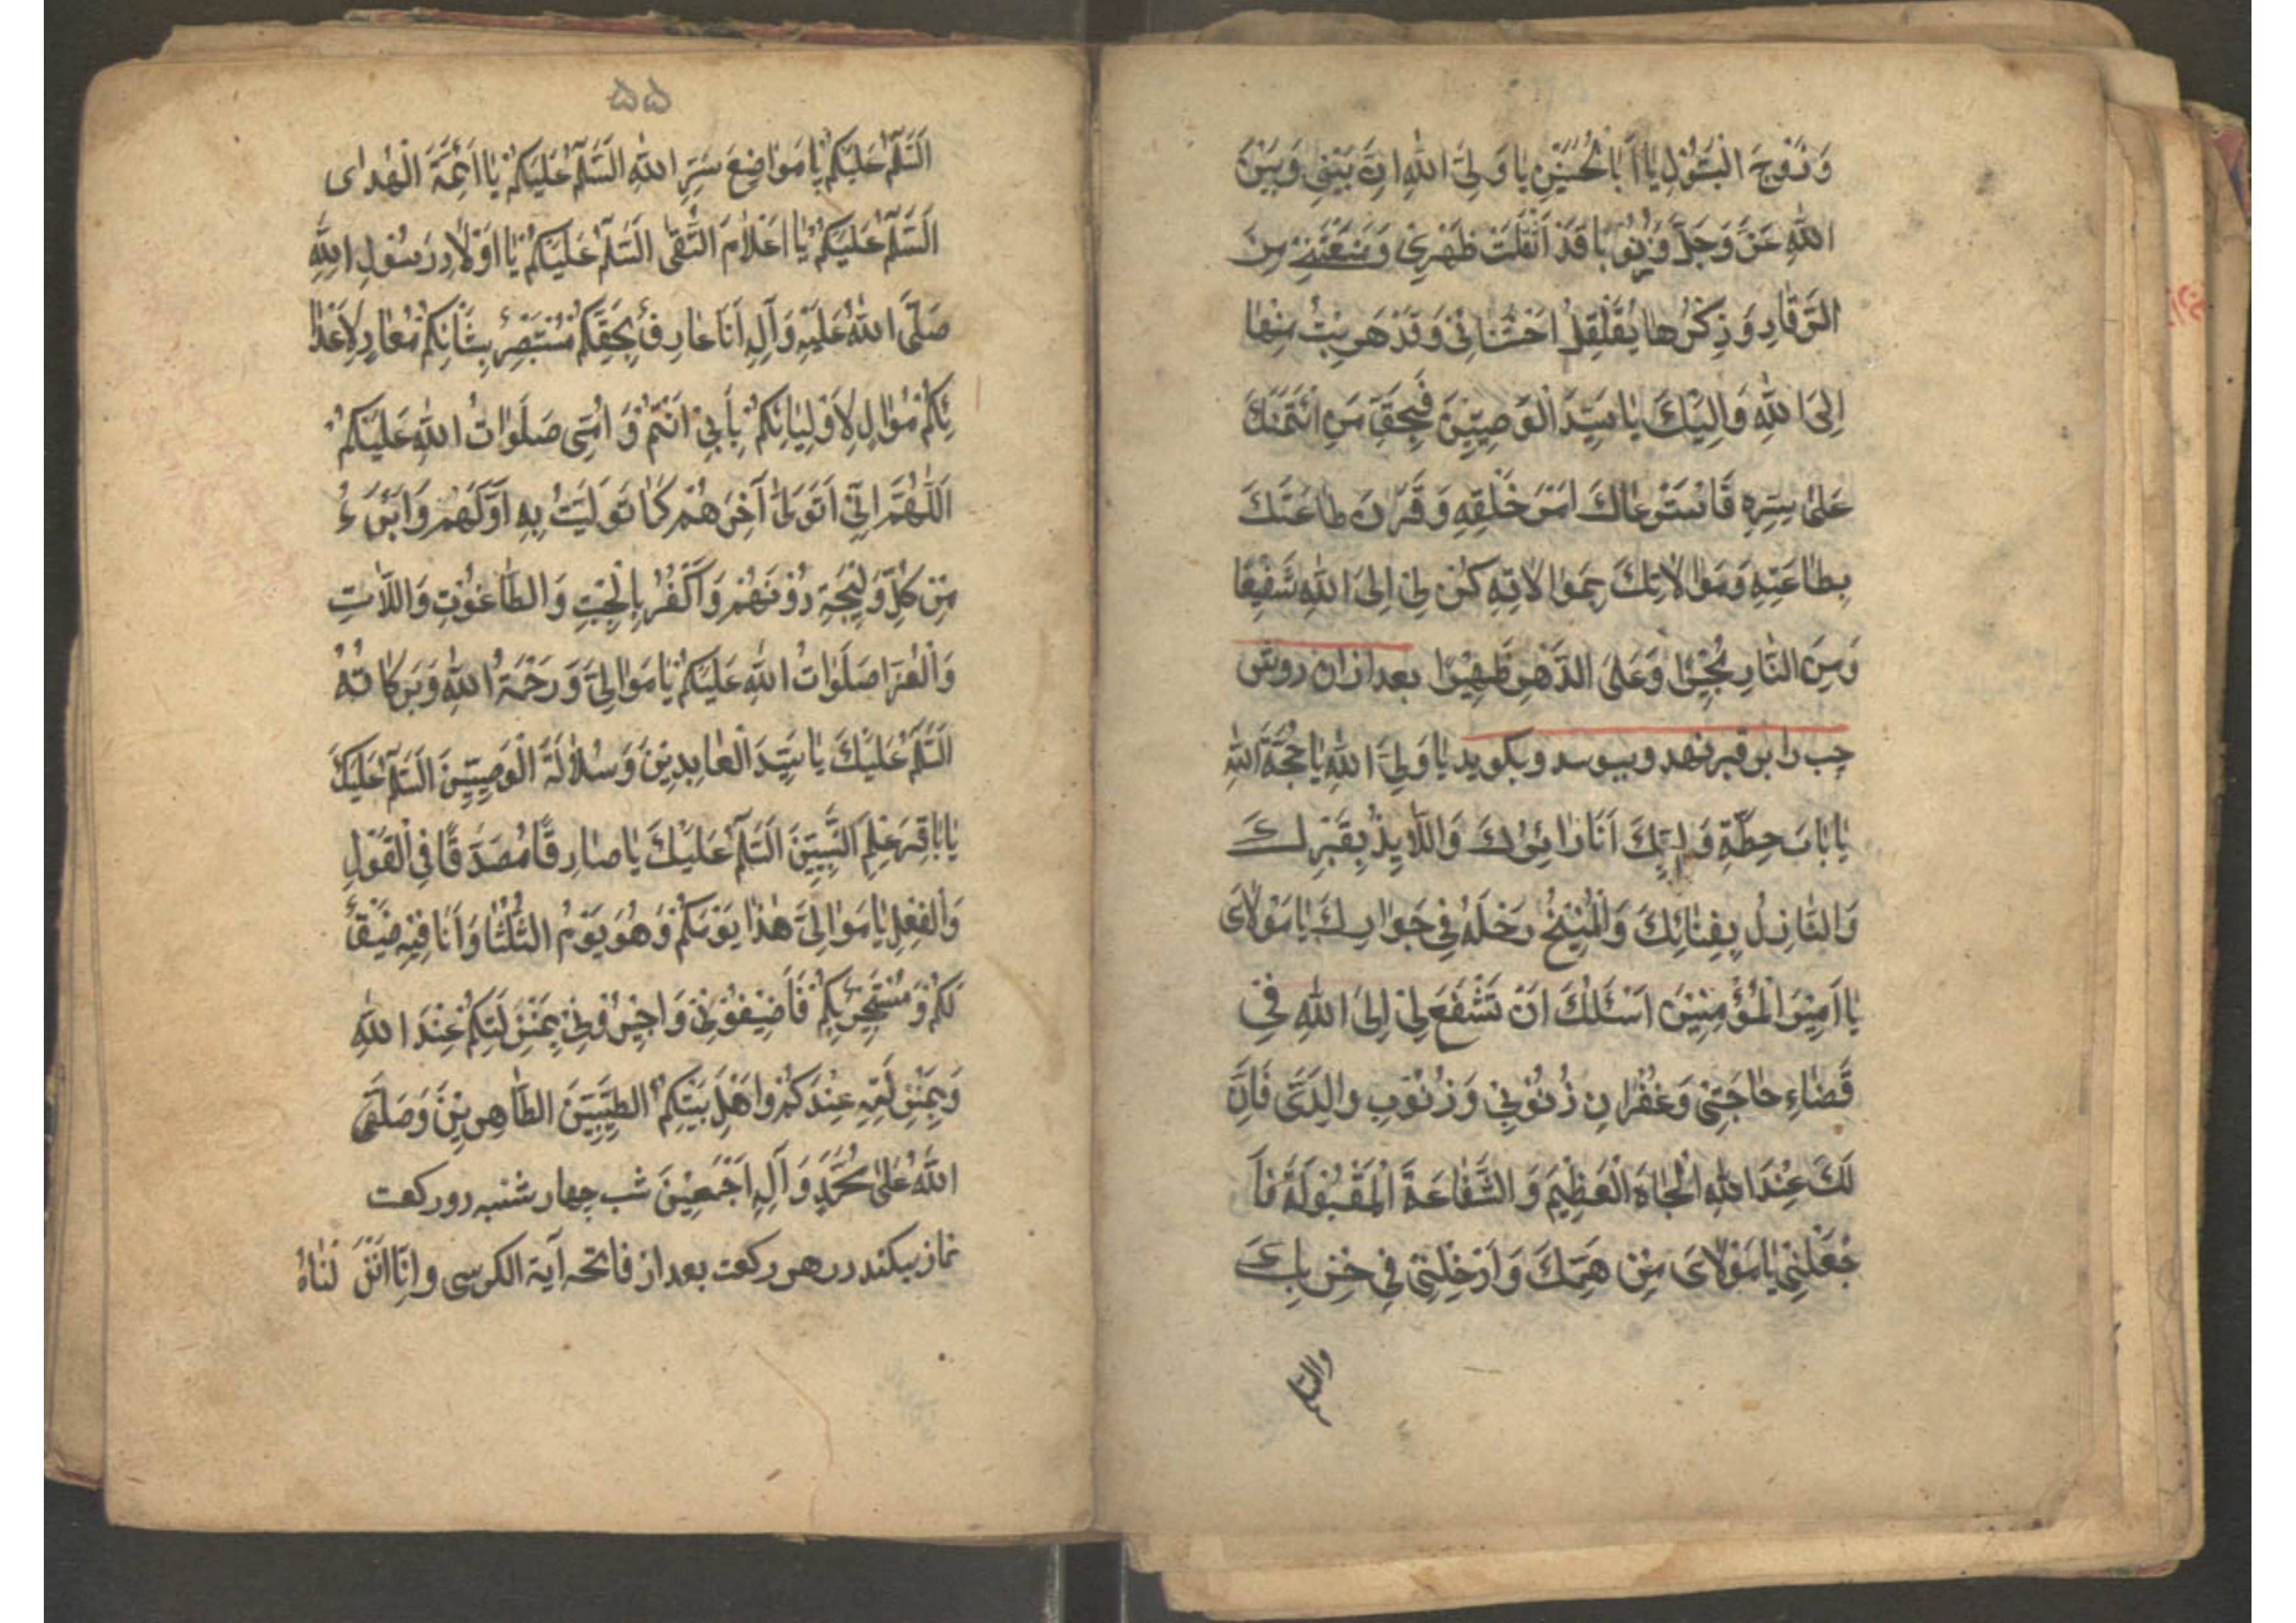 وَزَوْجَ الْبَتُوْلِ يَا اَبَا الْحُسَيْنِ يَا وَلِيَّ اللّٰهِ اِنَّ بَيْنِيْ وَبَيْنَ
اللّٰهِ عَزَّ وَجَلَّ ذُنُوْبًا قَدْ اَثْقَلَتْ ظَهْرِيْ وَمَنَعَتْنِيْ مِنَ
الرُّقَادِ وَذِكْرُهَا يُقَلْقِلُ اَحْشَائِيْ وَقَدْ هَرَبْتُ مِنْهَا
اِلَى اللّٰهِ وَاِلَيْكَ يَا سَيِّدَ الْوَصِيِّيْنَ فَبِحَقِّ مَنِ ائْتَمَنَكَ
عَلٰى سِرِّهِ فَاسْتَرْعَاكَ اَمْرَ خَلْقِهِ وَقَرَنَ طَاعَتَكَ
بِطَاعَتِهِ وَمُوَالَاتِكَ بِمُوَالَاتِهِ كُنْ لِيْ اِلَى اللّٰهِ شَفِيْعًا
وَمِنَ النَّارِ مُجِيْرًا وَعَلَى الدَّهْرِ ظَهِيْرًا بعد ازان روی
چپ را بر قبر نهد و ببوسد و بکوید یَا وَلِیَّ اللّٰهِ یَا حُجَّةَ اللّٰهِ
يَا بَابَ حِطَّةِ وَلِيُّكَ اَنَا زَائِرُكَ وَاللَّائِذُ بِقَبْرِكَ
وَالنَّازِلُ بِفِنَائِكَ وَالْمُنِيْخُ رَحْلَهُ فِيْ جِوَارِكَ يَا مَوْلَايَ
يَا اَمِيْرَ الْمُؤْمِنِيْنَ اَسْئَلُكَ اَنْ تَشْفَعَ لِيْ اِلَى اللّٰهِ فِيْ
قَضَاءِ حَاجَتِيْ وَغُفْرَانِ ذُنُوْبِيْ وَذُنُوْبِ وَالِدَيَّ فَاِنَّ
لَكَ عِنْدَ اللّٰهِ الْجَاهَ الْعَظِيْمَ وَالشَّفَاعَةَ الْمَقْبُوْلَةَ فَا
جْعَلْنِيْ يَا مَوْلَايَ مِنْ هَمِّكَ وَاَدْخِلْنِيْ فِيْ حِزْبِكَ
۵۵
اَلسَّلَامُ عَلَيْكُمْ يَا مَوَاضِعَ سِرِّ اللّٰهِ اَلسَّلَامُ عَلَيْكُمْ يَا اَئِمَّةَ الْهُدَاى
اَلسَّلَامُ عَلَيْكُمْ يَا اَعْلَامَ التُّقٰى اَلسَّلَامُ عَلَيْكُمْ يَا اَوْلَادَ رَسُوْلِ اللّٰهِ
صَلَّى اللّٰهُ عَلَيْهِ وَآلِهِ اَنَا عَارِفٌ بِحَقِّكُمْ مُسْتَبْصِرٌ بِشَانِكُمْ مُعَادٍ لِاَعْدَا
ئِكُمْ مُوَالٍ لِاَوْلِيَائِكُمْ بِاَبِيْ اَنْتُمْ وَاُمِّيْ صَلَوَاتُ اللّٰهِ عَلَيْكُمْ
اَللّٰهُمَّ اِنِّيْ اَتَوَلّٰى آخِرَهُمْ كَمَا تَوَلَّيْتُ بِهِ اَوَّلَهُمْ وَاَبْرَءُ
مِنْ كُلِّ وَلِيْجَةٍ دُوْنَهُمْ وَاَكْفُرُ بِالْجِبْتِ وَالطَّاغُوْتِ وَاللَّاتِ
وَالْعُزَّا صَلَوَاتُ اللّٰهِ عَلَيْكُمْ يَا مَوَالِيَّ وَرَحْمَةُ اللّٰهِ وَبَرَكَاتُهُ
اَلسَّلَامُ عَلَيْكَ يَا سَيِّدَ الْعَابِدِيْنَ وَسُلَالَةَ الْوَصِيِّيْنَ اَلسَّلَامُ عَلَيْكَ
يَا بَاقِرَ عِلْمِ النَّبِيِّيْنَ اَلسَّلَامُ عَلَيْكَ يَا صَادِقًا مُصَدَّقًا فِي الْقَوْلِ
وَالْفِعْلِ يَا مَوَالِيَّ هٰذَا يَوْمُكُمْ وَهُوَ يَوْمُ الثُّلَثَا وَاَنَا فِيْهِ ضَيْفٌ
لَكُمْ وَمُسْتَجِيْرٌ بِكُمْ فَاَضِيْفُوْنِيْ وَاَجِيْرُوْنِيْ بِمَنْزِلَتِكُمْ عِنْدَ اللّٰهِ
وَبِمَنْزِلَتِهِ عِنْدَكُمْ وَاَهْلِ بَيْتِكُمْ الطَّيِّبِيْنَ الطَّاهِرِيْنَ وَصَلَّى
اللّٰهُ عَلٰى مُحَمَّدٍ وَآلِهِ اَجْمَعِيْنَ شب چهار شنبه دو رکعت
نماز بیکند در هر رکعت بعد از فاتحه آیة الکرسی و اِنَّا اَنْزَلْنَاهُ